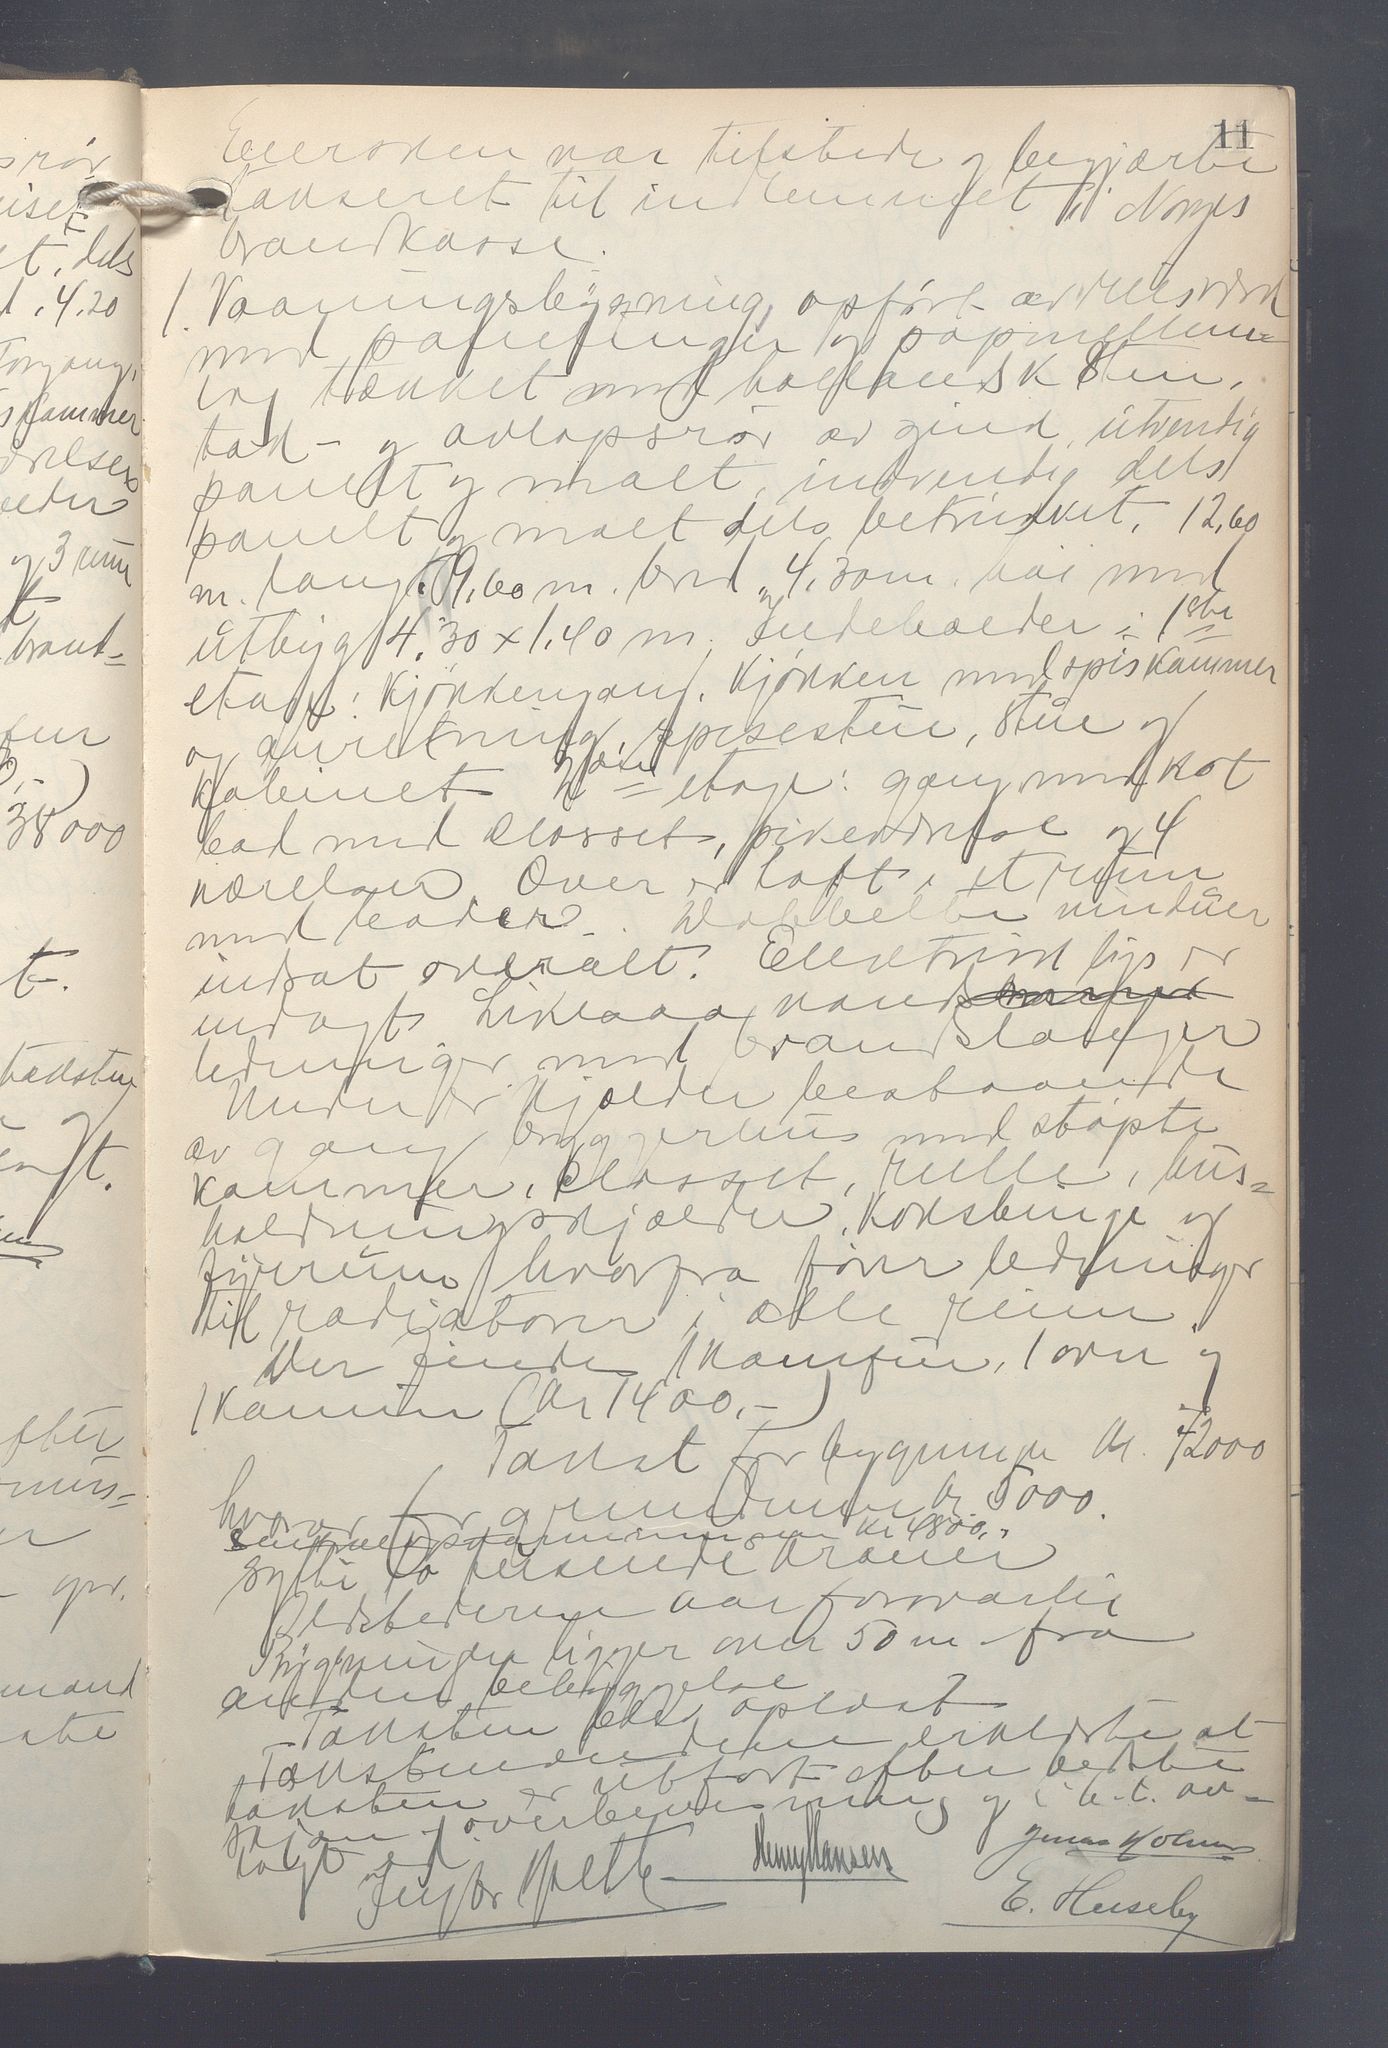 11
Eieren var tilstede og begjærte
taksert til indlemmet i Norges
brandkasse.
1. Vaaningsbygning, opført av reisverk
med panelinger og papmellem-
lag tækket med hollandsk sten,
tak- og avløpsrør av zink, utvendig
panelt og malt, indvendig dels
panelt og malt dels betrukket. 12,60
m. lang, 9,60 m. bred og 4,30 m. høi med
utbyg 4,30 x 1,40 m. Indeholder i 1ste
etage: Kjøkkengang, kjøkken med spiskammer
og anretning, spisestue, stue og
kabinet 2den etage: gang med kot
bad med closset, pikeværelse og 4
værelser. Over er loft i et rum
med boder. Dobbelte vinduer
indsat overalt. Elektrisk lys er
indlagt Likesaa vand
ledninger med brandslanger
Under er kjælder bestaaende
av gang bryggerhus med støpte
kammer, closset, rulle, hus-
holdningskjælder, koksbinge og
fyrrum hvorfra fører ledninger
til radiatorer i alle rum.
Der findes 1 komfur, 1 ovn og
1 kamin (kr 1400,-)
Takst for bygningen kr. 42000
hvorav for grundmur kr 5000.
kr 4800,-
to tusende kroner
Ildstederne var forsvarlig
Bygningen ligger over 50 m fra
anden bebyggelse
Taksten blev oplæst
Takstmændene erklærte at
taksten er utført efter bedste
skjøn og overbevisning og i h.t. av-
lagt ed
Henry Hansen
Jonas Holmen
E. Huseby
srør
et, dels
4,20
Forgang,
skammer
værelser
og 3 rum
brand-
38000
t.
taksten
og
efter
mand